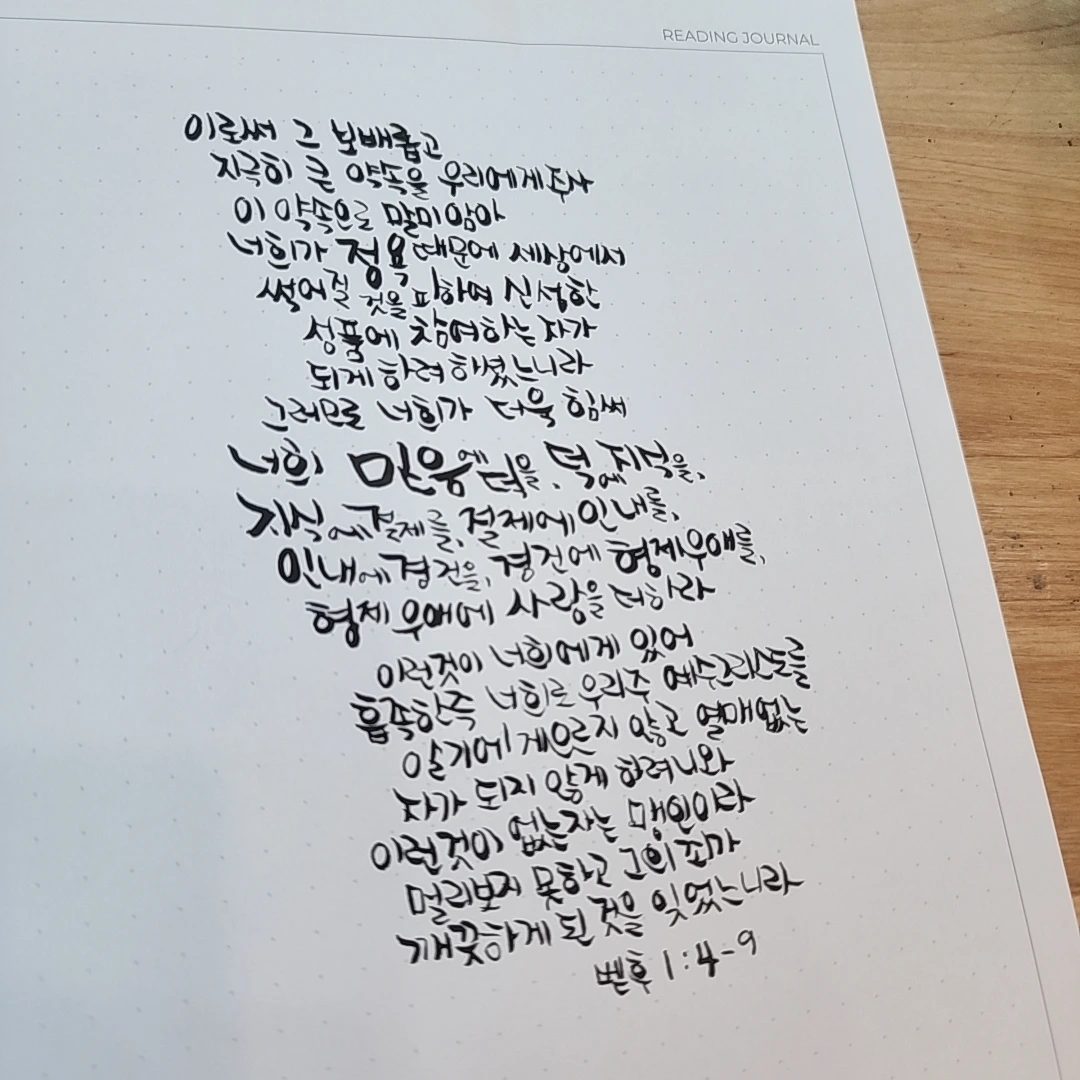 READING JOURNAL
이로써 그 보배롭고
지극히 큰 약속을 우리에게 주사
이 약속으로 말미암아
너희가 정욕 때문에 세상에서
썩어질 것을 피하여 신성한
성품에 참여하는 자가
되게 하려 하셨느니라
그러므로 너희가 더욱 힘써
너희 믿음에 덕을, 덕에 지식을,
지식에 절제를, 절제에 인내를,
인내에 경건을, 경건에 형제우애를,
형제 우애에 사랑을 더하라
이런것이 너희에게 있어
흡족한즉 너희로 우리주 예수그리스도를
알기에 게으르지 않고 열매없는
자가 되지 않게 하려니와
이런것이 없는자는 맹인이라
멀리보지 못하고 그의 죄가
깨끗하게 된 것을 잊었느니라
벧후 1:4-9